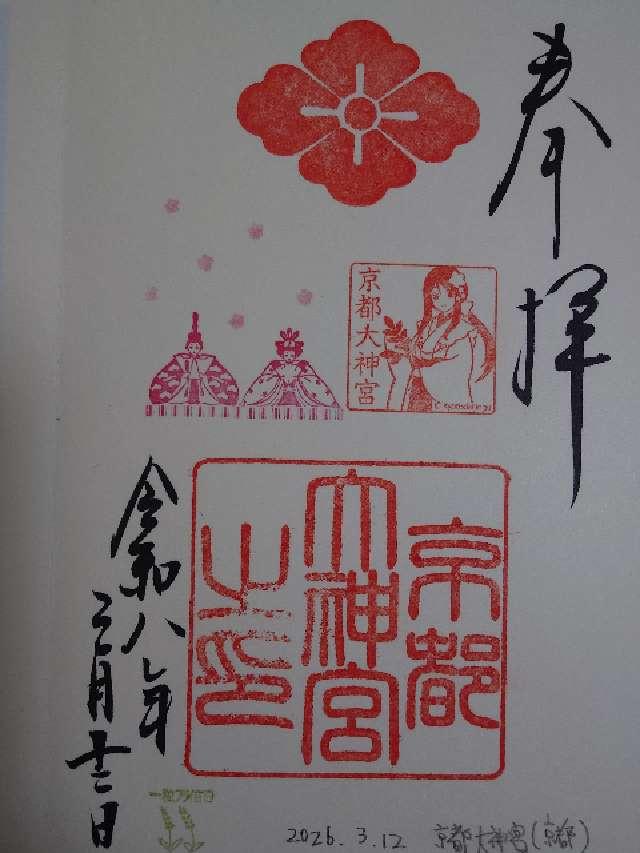 奉拝
京都大神宮
京都
大神宮
之印
令和八年
三月十二日
一粒万倍日
2026.3.12 京都大神宮(京都)